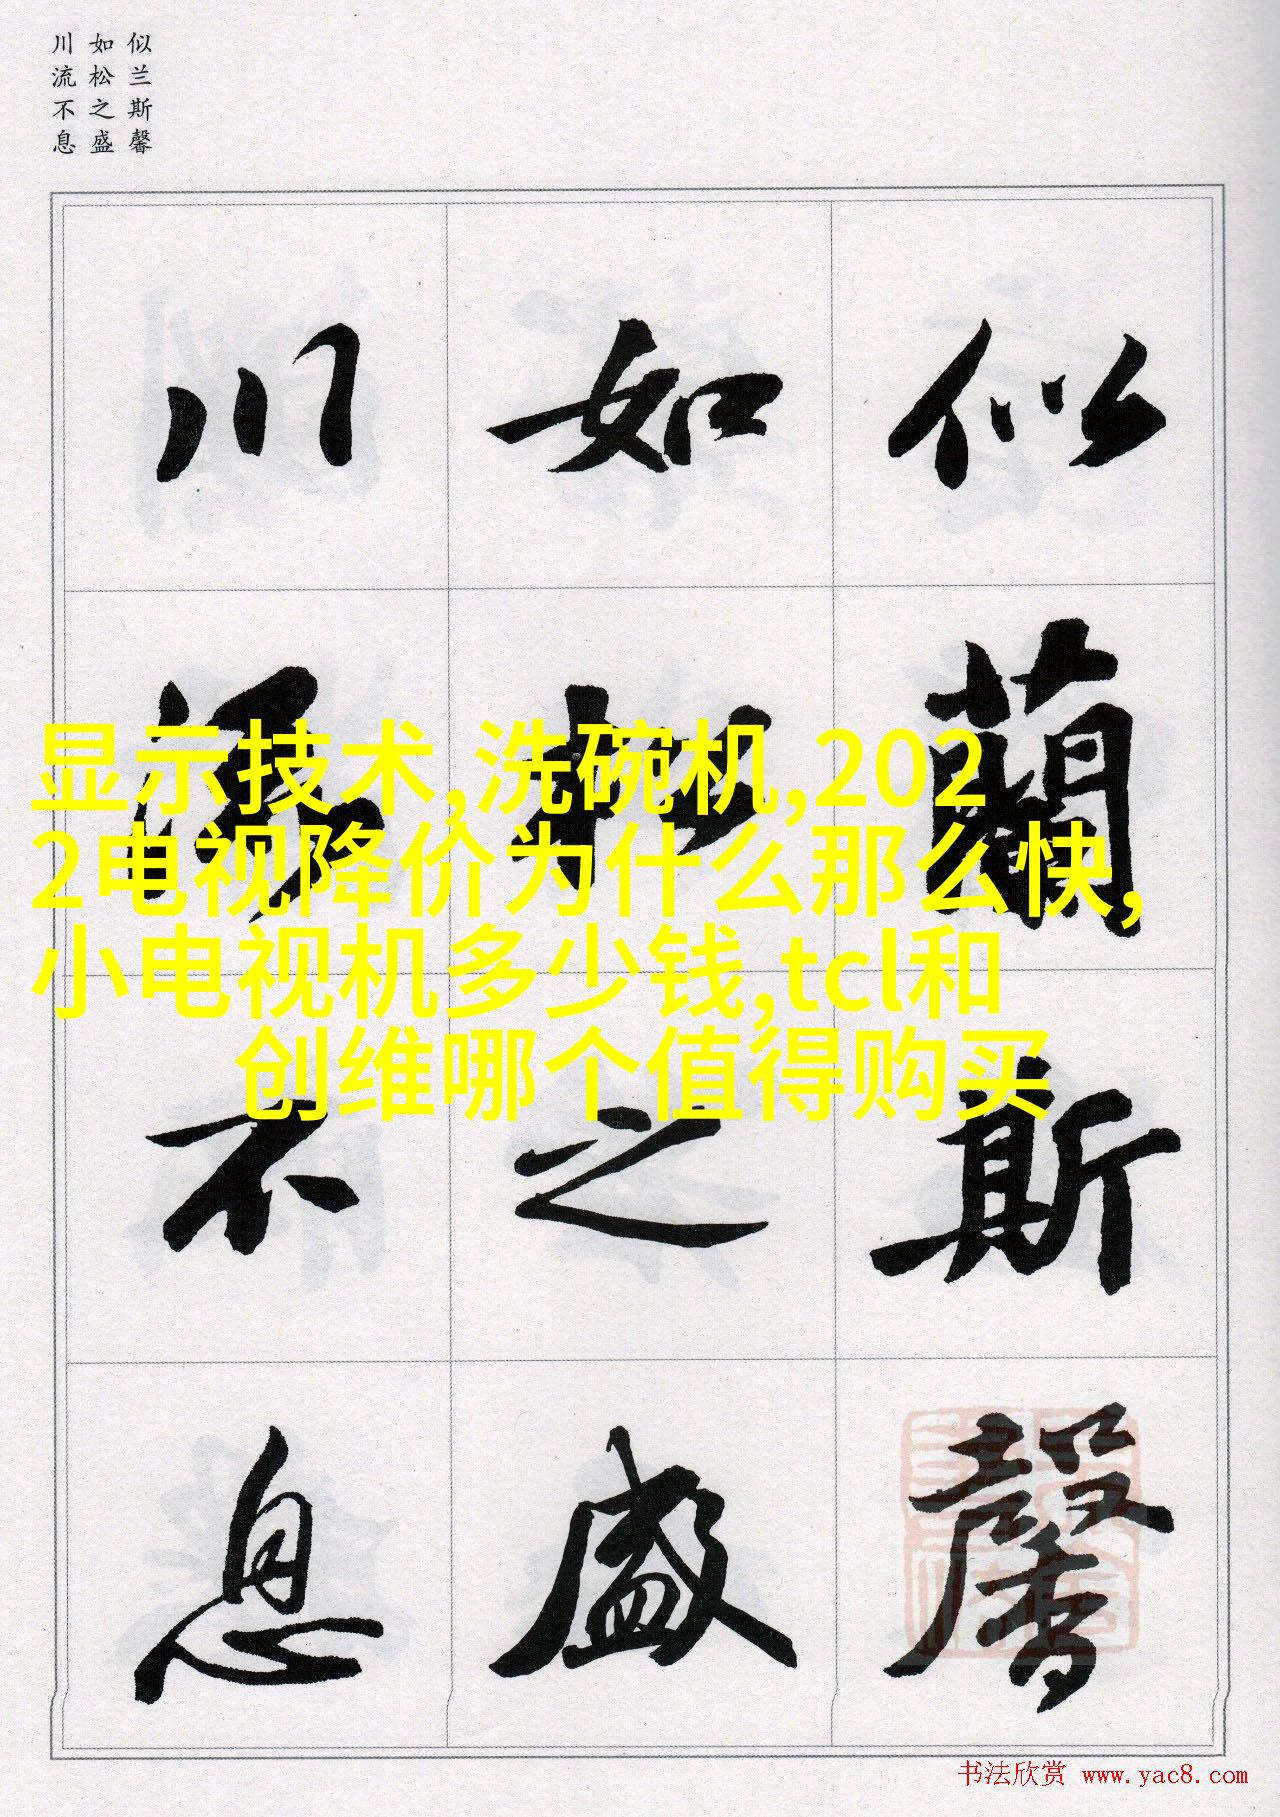 似兰斯馨
如松之盛
川流不息
似蘭斯馨
如松之盛
川流不息
显示技术,洗碗机,202
2电视降价为什么那么快,
小电视机多少钱,tcl和
创维哪个值得购买
书法欣赏 www.yac8.com